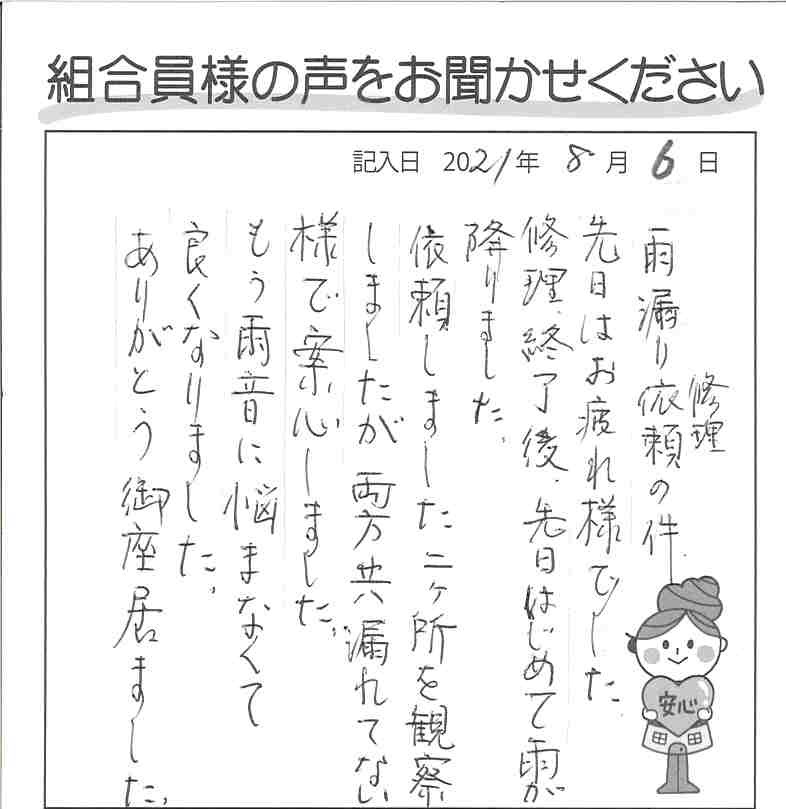 組合員様の声をお聞かせください
記入日 2021年 8月 6日
雨漏り依頼の件
修理
先日はお疲れ様でした
修理終了後、先日はじめて雨が
降りました、
依頼しました二ヶ所を観察
しましたが両方共漏れてない
様で案心しました、
もう雨音に悩まなくて
良くなりました、
ありがとう御座居ました、
安心